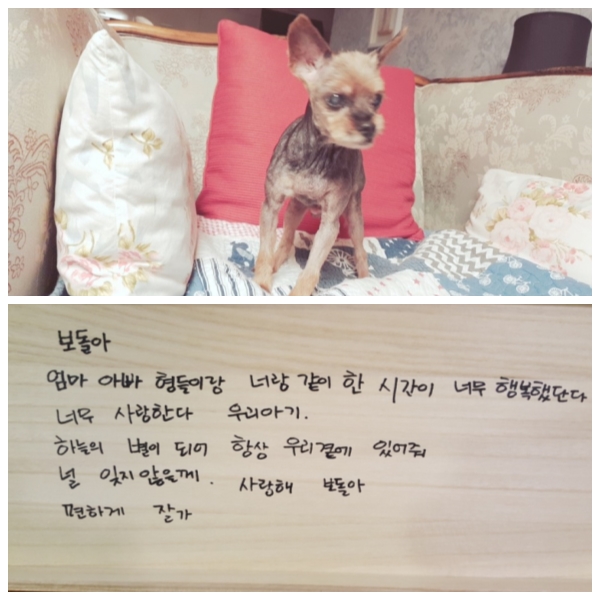 보돌아
엄마 아빠 형들이랑 너랑 같이 한 시간이 너무 행복했단다
너무 사랑한다 우리아기.
하늘의 별이 되어 항상 우리곁에 있어줘
널 잊지않을께. 사랑해 보돌아
편하게 잘가